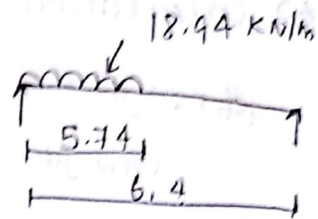 18.94 KN/m
5.74
6.4